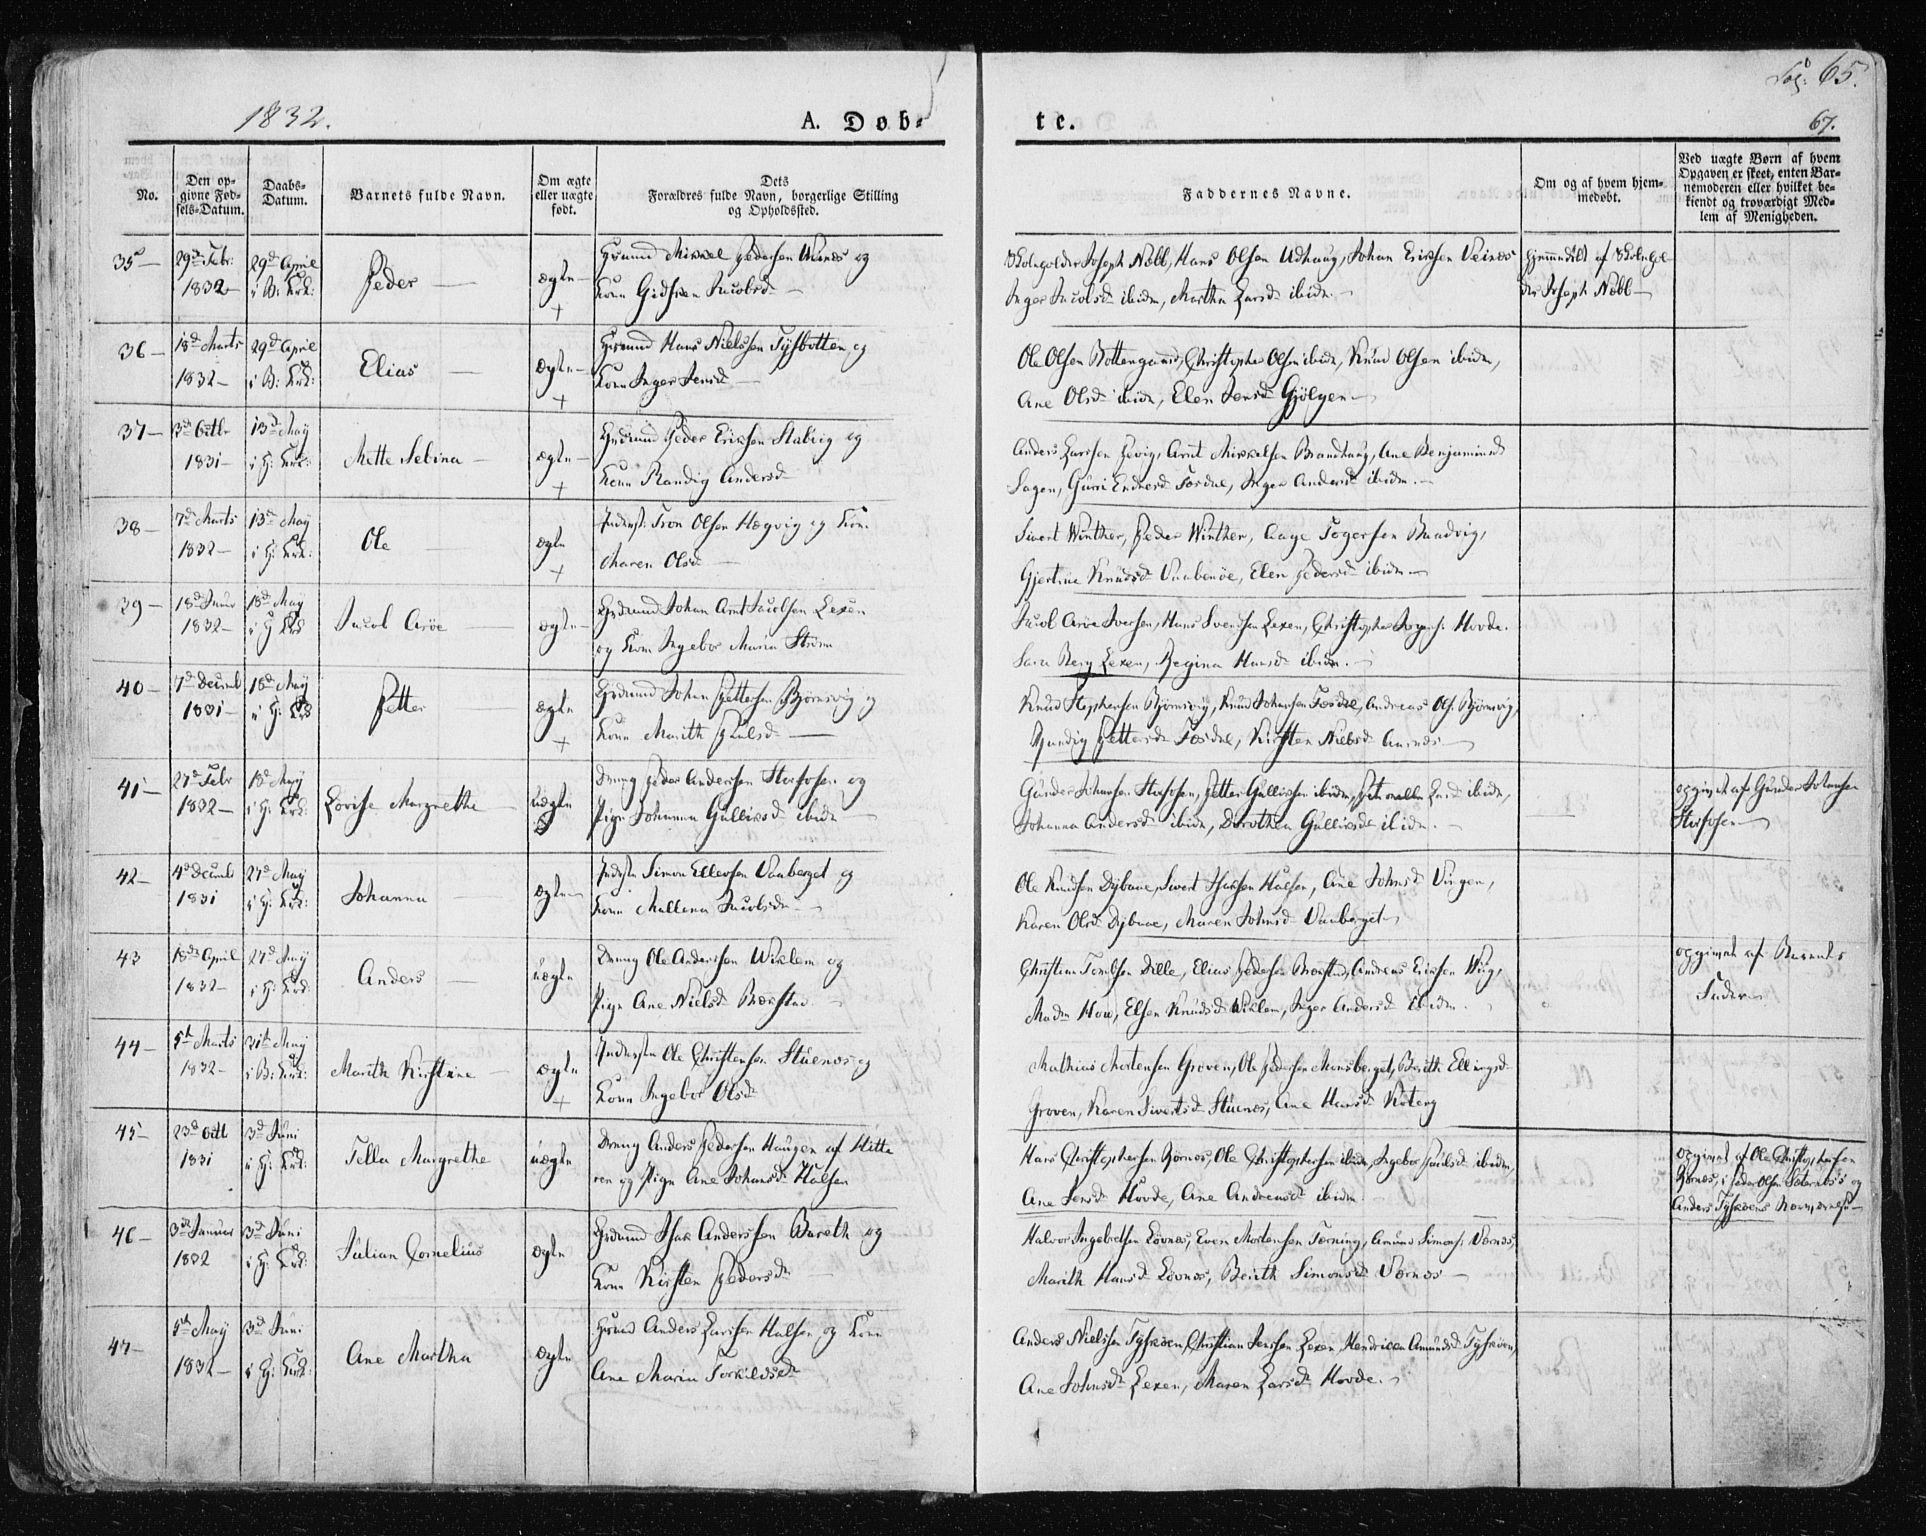 Fol: 65.
1832.
A. Døb-
te.
67.
No.
Den op-
givne Fød-
sels-Datum.
Daabs-
Datum.
Barnets fulde Navn.
Om ægte
eller uægte
født.
Dets
Forældres fulde Navn, borgerlige Stilling
og Opholdssted.
Faddernes Navne.
Om og af hvem hjem-
medøbt.
Ved uægte Børn af hvem
Opgaven er skeet, enten Bar-
nemoderen eller hvilket be-
kiendt og troværdigt Med-
lem af Menigheden.
35 — 29de Febr: 29de April
1832 — i B: Kirk: Peder — ægte —
+
Mikkel Pedersen og
Kone Jacobsd. —
Skoleholder Joseph Nebb, Hans Olsen Udhaug, Johan Eriksen Veines
Inger Jacobsd ibidm, Martha Larsd ibidm. —
Hjemmedøbt af Skolehol-
der Joseph Nebb —
36 — 18d Marts 29d April
1832 — i B: Kirk: Elias — ægte —
+
Hans Nielssen Tysbotten og
Kone Inger Jensd —
Ole Olsen Bottengaard, Christopher Olsen ibidm, Knud Olsen ibidm,
Ane Olsd ibidm, Elen Jensd Gjölgen —
37 — 13d May
1831 — i H: Kirk: Mette Sebina — ægte —
+
Peder Eriksen Stabvig og
Kone Randig Andersd
Anders Larssen Hevig, Arnt Mikkelsen Brandhaug, Ane Benjaminsd
Sagen, Gurri Endresd Fosdal, Inger Andersd ibidm. —
38 — 7d Marts 13d May
1832 — i H: Kirk: Ole — ægte
+
Inderst: Tron Olsen Hegvig og Kone
Maren Olsd —
Sivert Winther, Peder Winther, Aage Togersen Bradvig,
Gjertine Knudsd Uaabenöe, Elen Pedersd ibidm —
39 — 18d Janr 18d May
1832 — i H Kirk Jacob Aröe — ægte —
Johan Arnt Jacobsen Lexen
og Kone Ingebor Maria Ström
Jacob Aröe Iversen, Hans Svendsen Lexen, Christopher Hovde.
Sara Berg Lexen, Regina Hansd ibidm. —
40 — 7d Decemb 18d May
1831 — i H: Kirk Petter — ægte
+
Johan Pettersen Björnsvig og
Kone Marith Paulsd —
Knud Stephensen Björnsvig, Knud Johansen Fosdal, Andreas Ols: Björnsvig,
Randig Pettersd Fosdal, Kirsten Nielsd Aarnes —
41 — 27d Febr 18d May
1832 — i H: Kirk: Lovise Margrethe — uægte
Dreng Peder Anderssen Storfosen og
Pige Johanna Gulliksd ibidm —
Gunder Johansen Storfosen, Petter Gulliksen ibidm, Petronelle Larsd ibidm,
Johanna Andersd ibidm, Dorothea Gulliksd ibidm. —
opgivet af Gunder Johansen
Storfosen —
42 — 4d Decemb 27d May
1831 i H: Kirk: Johanna — ægte —
Inderst Simon Ellevsen Vaaberget og
Kone Mallena Jacobsd —
Ole Knudsen Dybvae, Sivert Halsen, Ane Johnsd Vingen,
Karen Olsd Dybvae, Maren Johnsd Vaaberget —
43 18d April 27d May
1832 — i H: Kirk: Anders — uægte
Dreng Ole Anderssen Wiklem og
Pige Ane Nielsd Borstad. —
Christian Dille, Elias Pedersen Borstad, Andreas Eriksen Wiig,
Madm How, Elsen Knudsd Wiklem, Inger Andersd ibidm. —
opgivet af Barnets
Fader —
44 — 5d Marts 31te May
1832 — i B: Kirk: Marith Kirstine — ægte
+
Indersten Ole Christensen Stuenes og
Kone Ingebor Olsd
Mathias Mortensen Groven, Ole Pedersen Monsberget, Berith Ellingsd
Groven, Karen Sivertsd Stuenes, Ane Hansd Koteng
45 — 23d Octb 3d Juni
1831 i H: Kirk: Tella Margrethe uægte
Dreng Anders Pedersen Haugen af Hitte
ren og Pige Ane Johansd Halsen
Hans Christophersen Börnes, Ole Christophersen ibidm, Ingebor Paulsd ibidm,
Ane Jensd Hovde, Ane Andreasd ibidm.
opgivet af Ole Christophersen
Börnes, Peder Olsen og
Anders
46 — 3d Januar 3d Juni
1832 i H: Kirk: Julian Cornelius ægte
Isak Anderssen Bareth og
Kone Kirsten Pedersd —
Halvor Ingebretsen Lövnes, Even Mortensen Terning, Amund Simons: Vernes,
Marith Hansd Lövnes, Berith Simonsd Vernes —
47 — 5d May 3d Juni
1832 — i H: Kirk: Ane Martha ægte
Anders Larssen Halsen og Kone
Ane Maria Torkildsd
Anders Nielssen Tysköen, Christian Jenssen Lexen, Hendrica Amundsd Tysköen,
Ane Johnsd Lexen, Maren Larsd Hovde. —